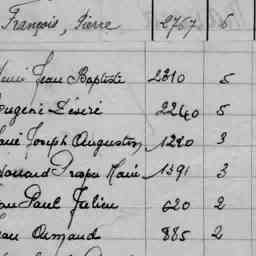 François, Pierre 2767 5
Jean Baptiste 2310 5
Eugène Désiré 2240 5
Joseph Augustin 1220 3
Prosper Marie 1391 3
Paul Julien 620 2
Armand 885 2